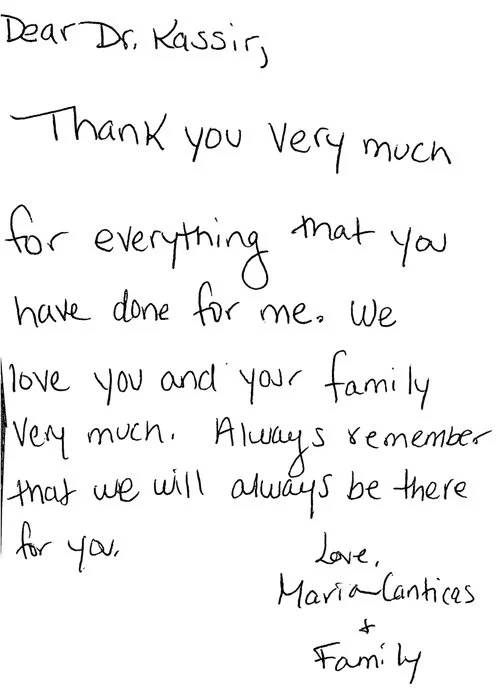 Dear Dr. Kassir,
Thank you very much
for everything that you
have done for me. We
love you and your family
very much. Always remember
that we will always be there
for you.
Love,
Maria Canticas
+
Family